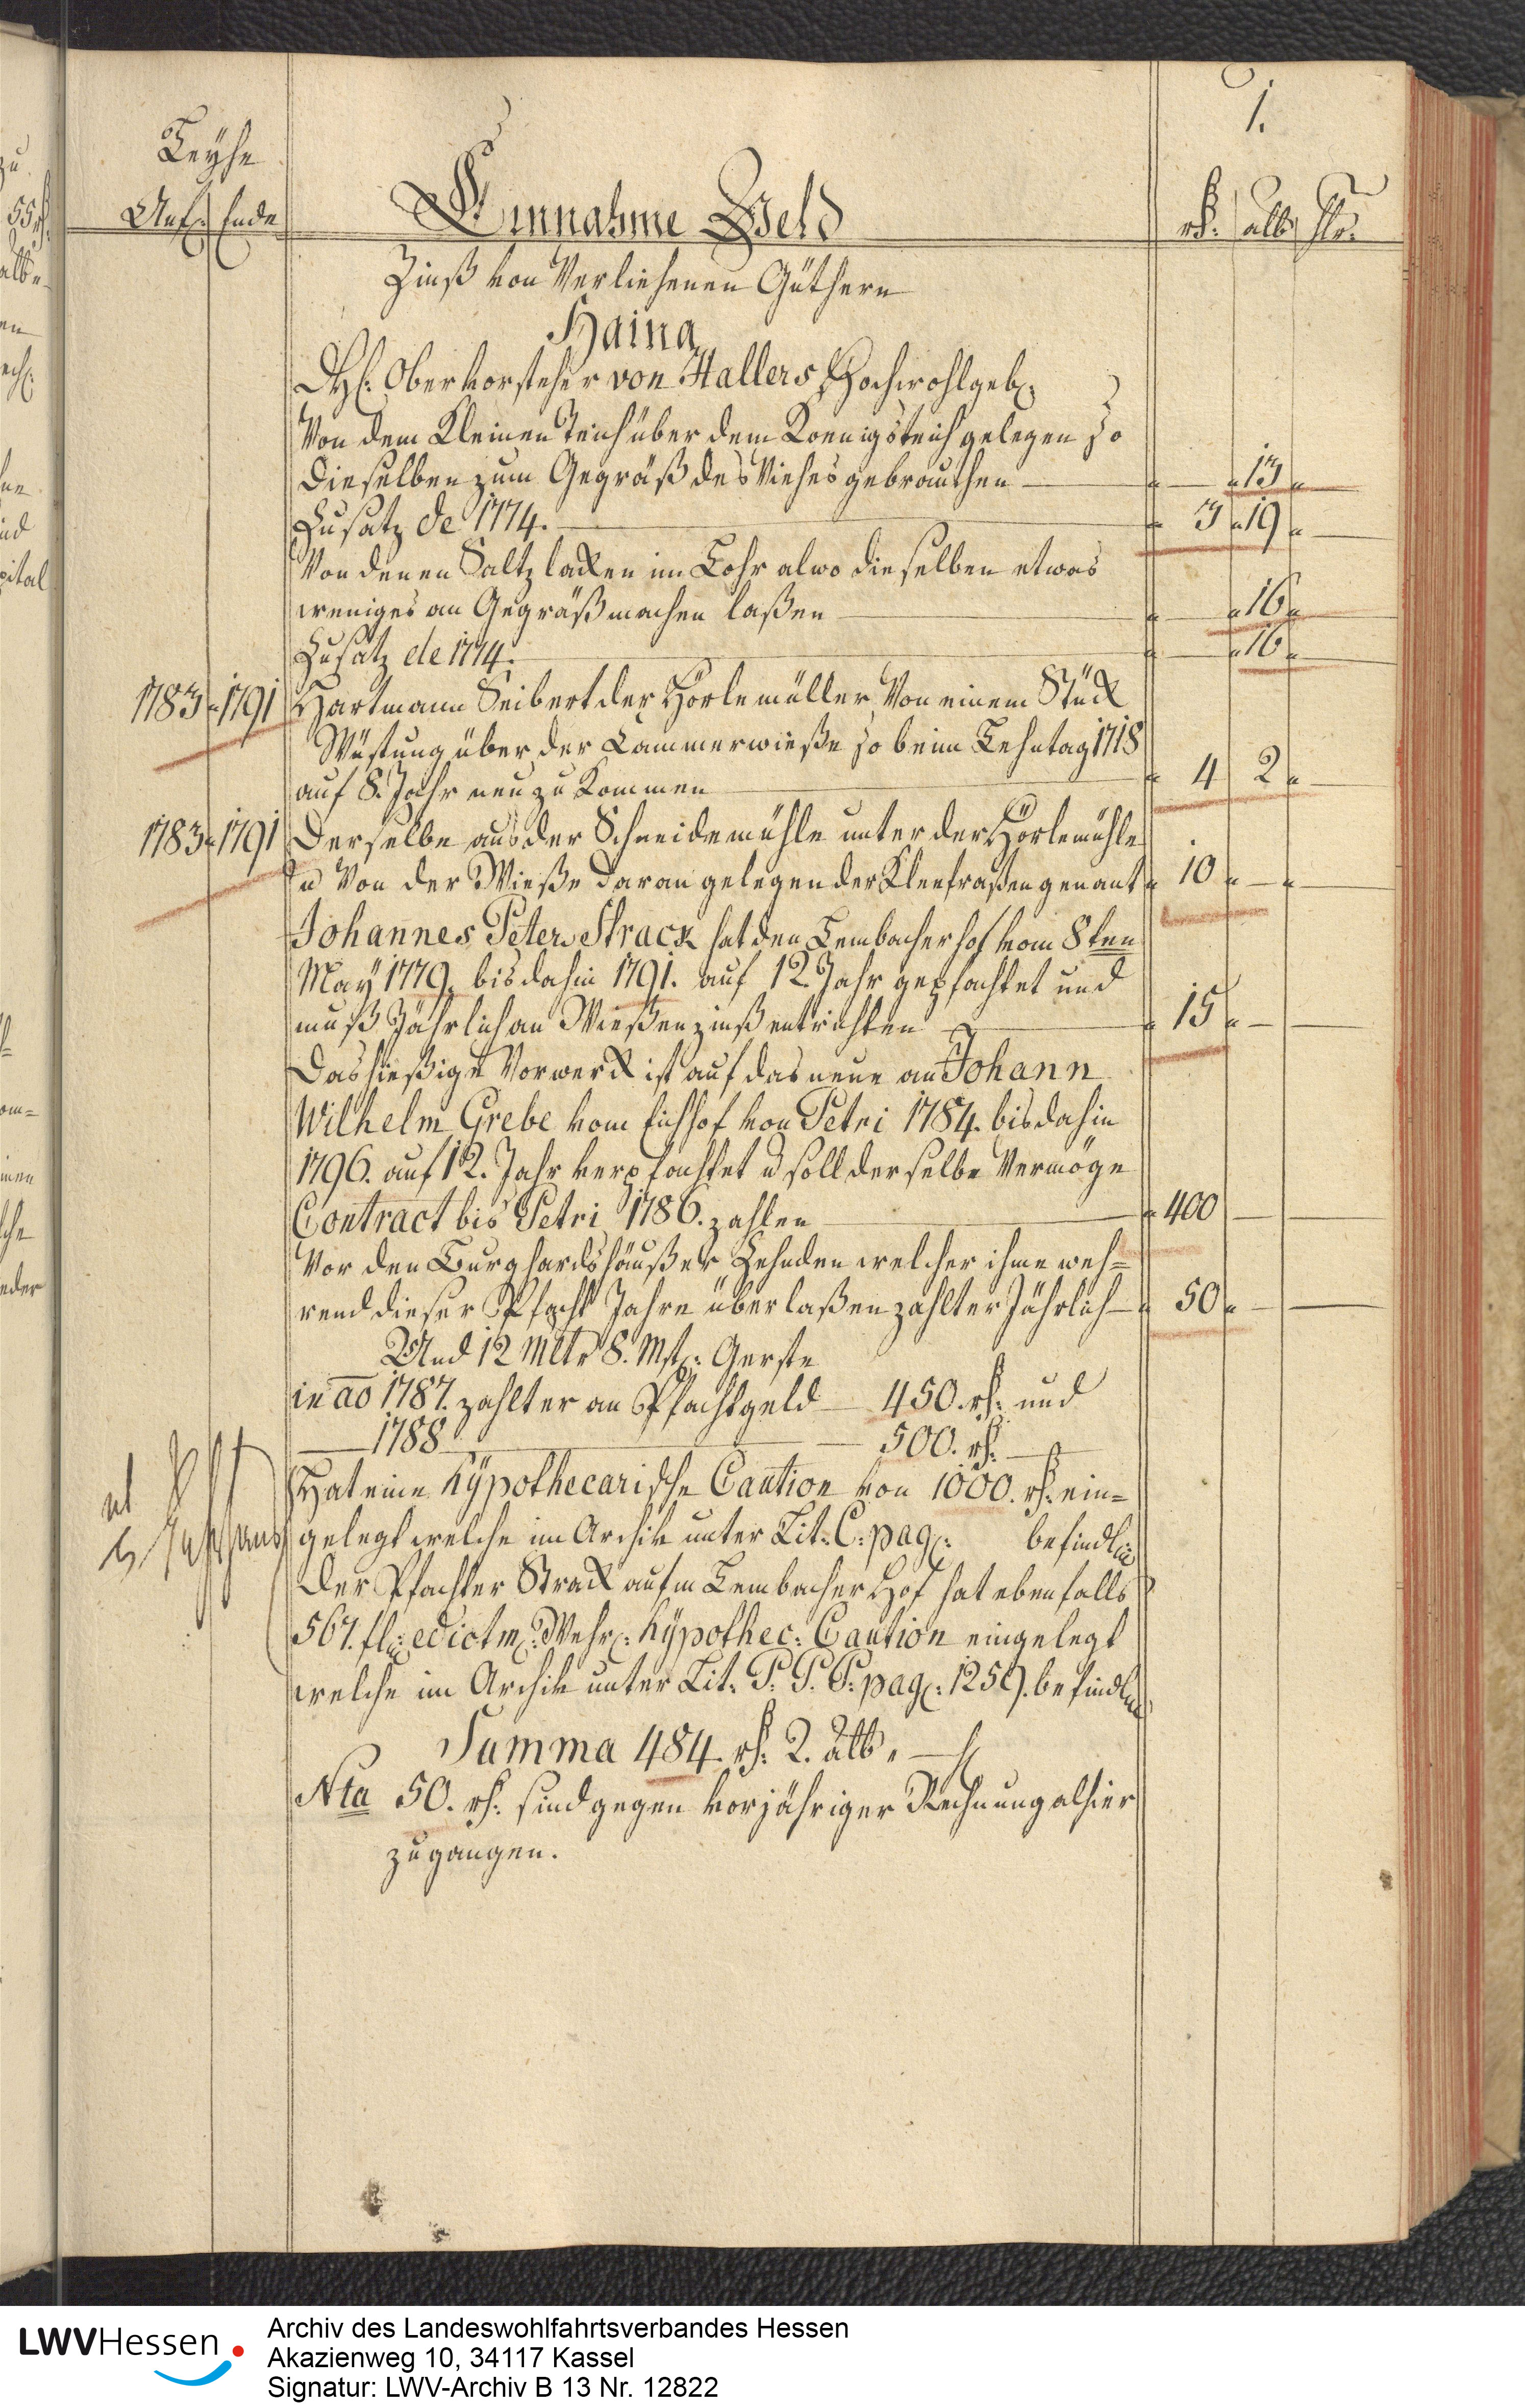 1.
Leyhe
Anf: Ende
Einnahme Geld
rh: alb hlr:
Zinß von Verliehenen Güthern
Haina
Obervorsteher von Hallers Hochwohlgeb:
Von dem Kleinen Teich über dem Koenigsteich gelegen so
dieselben zum Gegräß des Viehes gebrauchen — 13
Zusatz de 1774. — 3 19
Von denen Saltzlacken im Lohr alwo dieselben etwas
weniges an Gegräß machen laßen — 16
Zusatz de 1774. — 16
1783 - 1791 Hartmann Seibert der Hörlemüller Von einem Stück
Wüstung über der Cammerwieße so beim Lehntag 1718
auf 8. Jahr neu zu Kommen — 4 2
1783 - 1791 Derselbe aus der Schneidemühle unter der Hörlemühle
u Von der Wieße daran gelegen der genant 10
Johannes Peter Strack hat den Lembacherhof vom 8ten
May 1779. bis dahin 1791. auf 12. Jahr gepfachtet und
muß Jährlich an Wießenzinß entrichten — 15
Das hießige Vorwerck ist auf das neue an Johann
Wilhelm Grebe vom Eichhof von Petri 1784. bis dahin
1796. auf 12. Jahr verpfachtet u soll derselbe Vermöge
Contract bis Petri 1786. zahlen — 400
Vor den Burghardshäußer Zehnden welcher ihme weh=
rend dieser Pfacht Jahre überlaßen zahlt er Jährlich — 50
Und 12 Mltr 8. Mst: Gerste
in ao 1787. zahlt er an Pfachtgeld — 450. rh: und
— 1788 — 500. rh:
Hat eine Hypothecarische Caution von 1000. rh: ein=
gelegt welche im Archiv unter Lit: C: pag: befindl:
Der Pfachter Strack aufm Lembacher Hof hat ebenfalls
567. fl: edictm: Wehr: Hypothec: Caution eingelegt
welche im Archiv unter Lit: P. P. P: pag: 1259. befindl:
Summa 484. rh: 2. alb. —
Nta 50. rh: sind gegen vorjähriger Rechnung alhier
zugangen.
LWVHessen
Archiv des Landeswohlfahrtsverbandes Hessen
Akazienweg 10, 34117 Kassel
Signatur: LWV-Archiv B 13 Nr. 12822